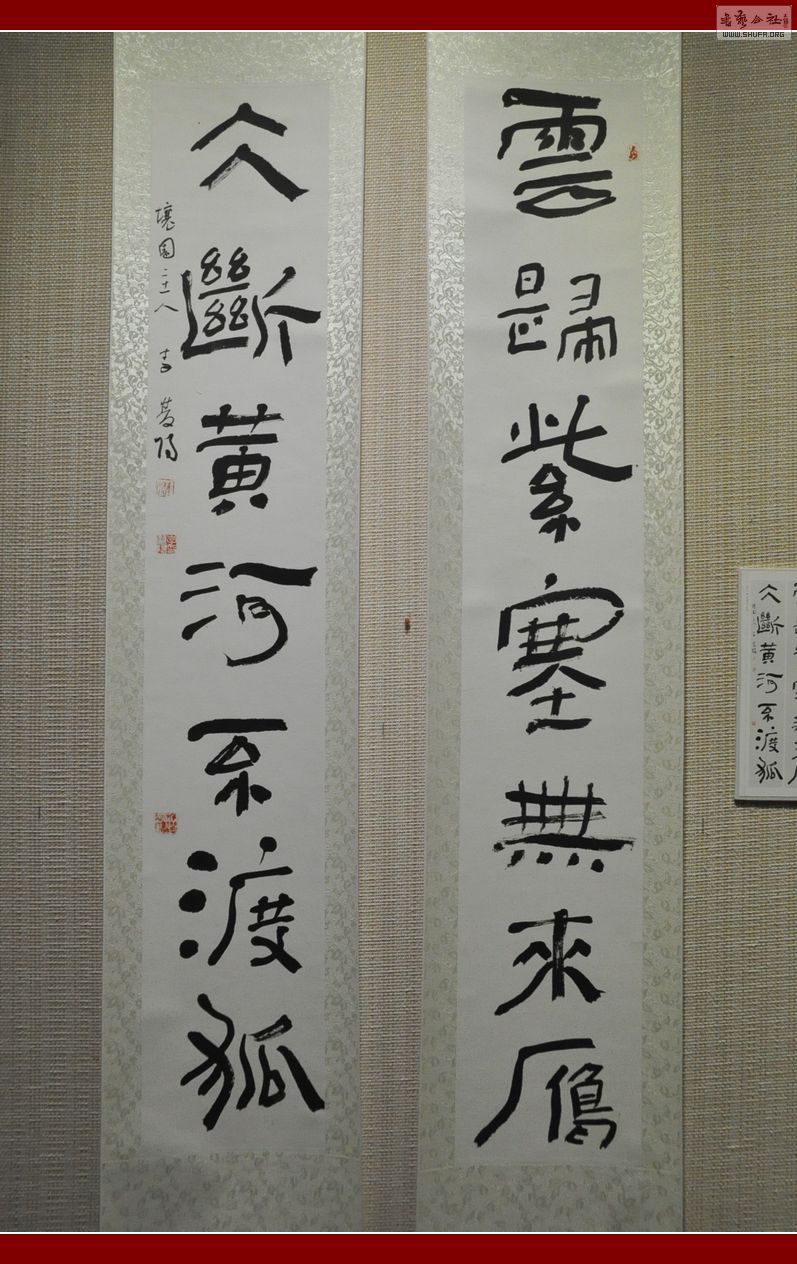 書藝公社
WWW.SHUFA.ORG
雲歸紫塞無來雁
仌斷黃河不渡狐
壤園 人 李
仌斷黃河不渡狐